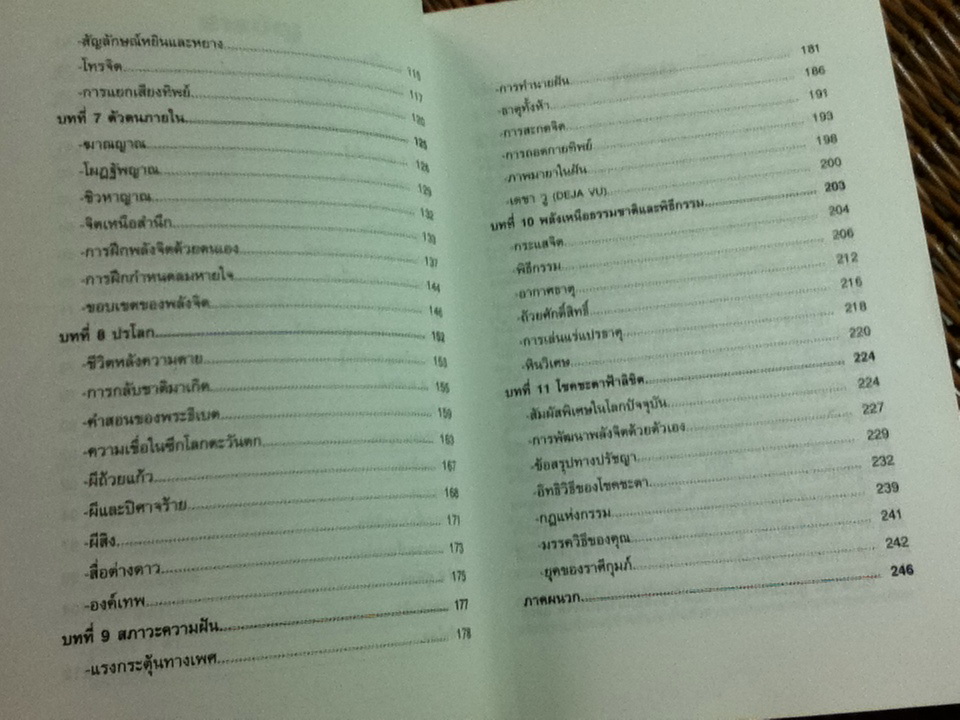 -สัญลักษณ์หยินและหยาง.................... 115
-โทรจิต.................... 117
-การแยกเสียงทิพย์.................... 120
บทที่ 7 ตัวตนภายใน.................... 125
-ฆาณญาณ.................... 126
-โผฏฐัพญาณ.................... 129
-ชิวหาญาณ.................... 132
-จิตเหนือสำนึก.................... 133
-การฝึกพลังจิตด้วยตนเอง.................... 137
-การฝึกกำหนดลมหายใจ.................... 144
-ขอบเขตของพลังจิต.................... 146
บทที่ 8 ปรโลก.................... 152
-ชีวิตหลังความตาย.................... 153
-การกลับชาติมาเกิด.................... 156
-คำสอนของพระธิเบต.................... 159
-ความเชื่อในซีกโลกตะวันตก.................... 163
-ผีถ้วยแก้ว.................... 167
-ผีและปีศาจร้าย.................... 168
-ผีสิง.................... 171
-สื่อต่างดาว.................... 173
-องค์เทพ.................... 175
บทที่ 9 สภาวะความฝัน.................... 177
-แรงกระตุ้นทางเพศ.................... 178
-การทำนายฝัน.................... 181
-ธาตุทั้งห้า.................... 186
-การสะกดจิต.................... 191
-การถอดกายทิพย์.................... 193
-ภาพมายาในฝัน.................... 198
-เดชา วู (DEJA VU).................... 200
บทที่ 10 พลังเหนือธรรมชาติและพิธีกรรม.................... 203
-กระแสจิต.................... 204
-พิธีกรรม.................... 206
-อากาศธาตุ.................... 212
-ถ้วยศักดิ์สิทธิ์.................... 216
-การเล่นแร่แปรธาตุ.................... 218
-หินวิเศษ.................... 220
บทที่ 11 โชคชะตาฟ้าลิขิต.................... 224
-สัมผัสพิเศษในโลกปัจจุบัน.................... 224
-การพัฒนาพลังจิตด้วยตัวเอง.................... 227
-ข้อสรุปทางปรัชญา.................... 229
-อิทธิวิธีของโชคชะตา.................... 232
-กฎแห่งกรรม.................... 239
-มรรควิธีของคุณ.................... 241
-ยุคของราศีกุมภ์.................... 242
ภาคผนวก.................... 246